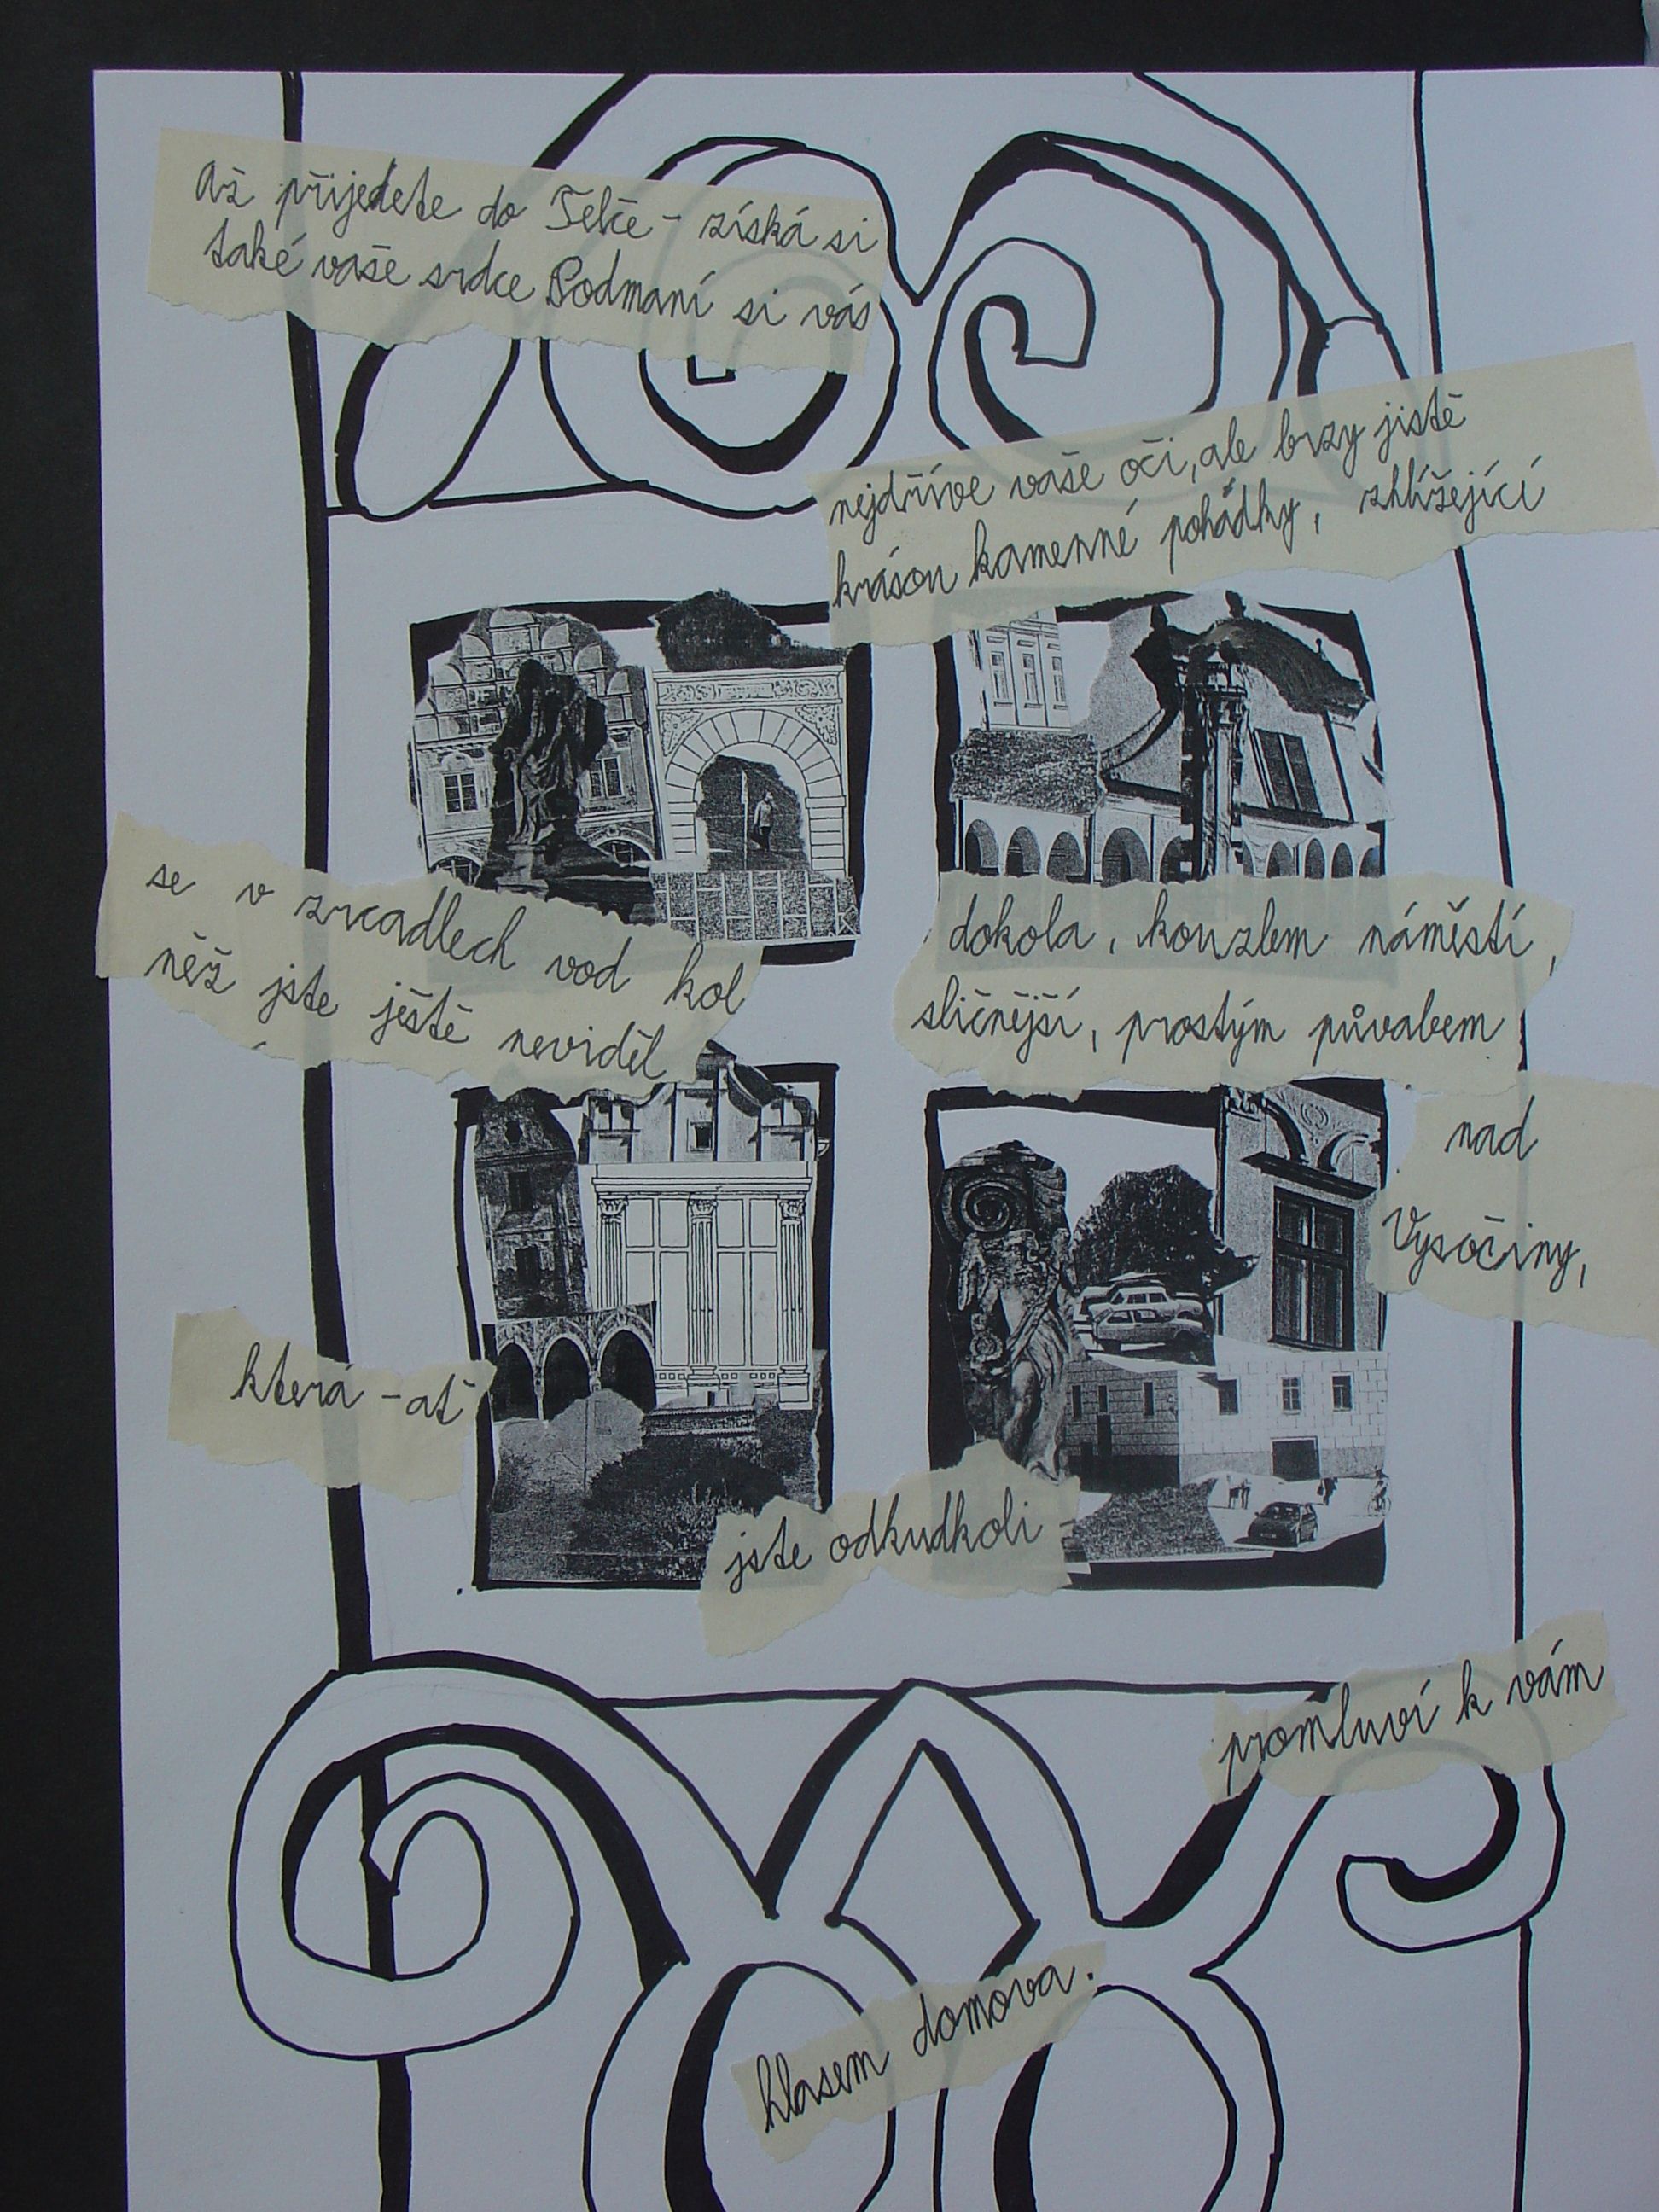 Až přijedete do Telče - získá si
také vaše srdce Podmaní si vás
nejdříve vaše oči, ale brzy jistě
krásou kamenné pohádky, zhlížející
se v zrcadlech vod kol
něž jste ještě neviděl
dokola, kouzlem náměstí,
sličnější, prostým půvabem
nad
Vysočiny,
která - ať
jste odkudkoli -
promluví k vám
hlasem domova.